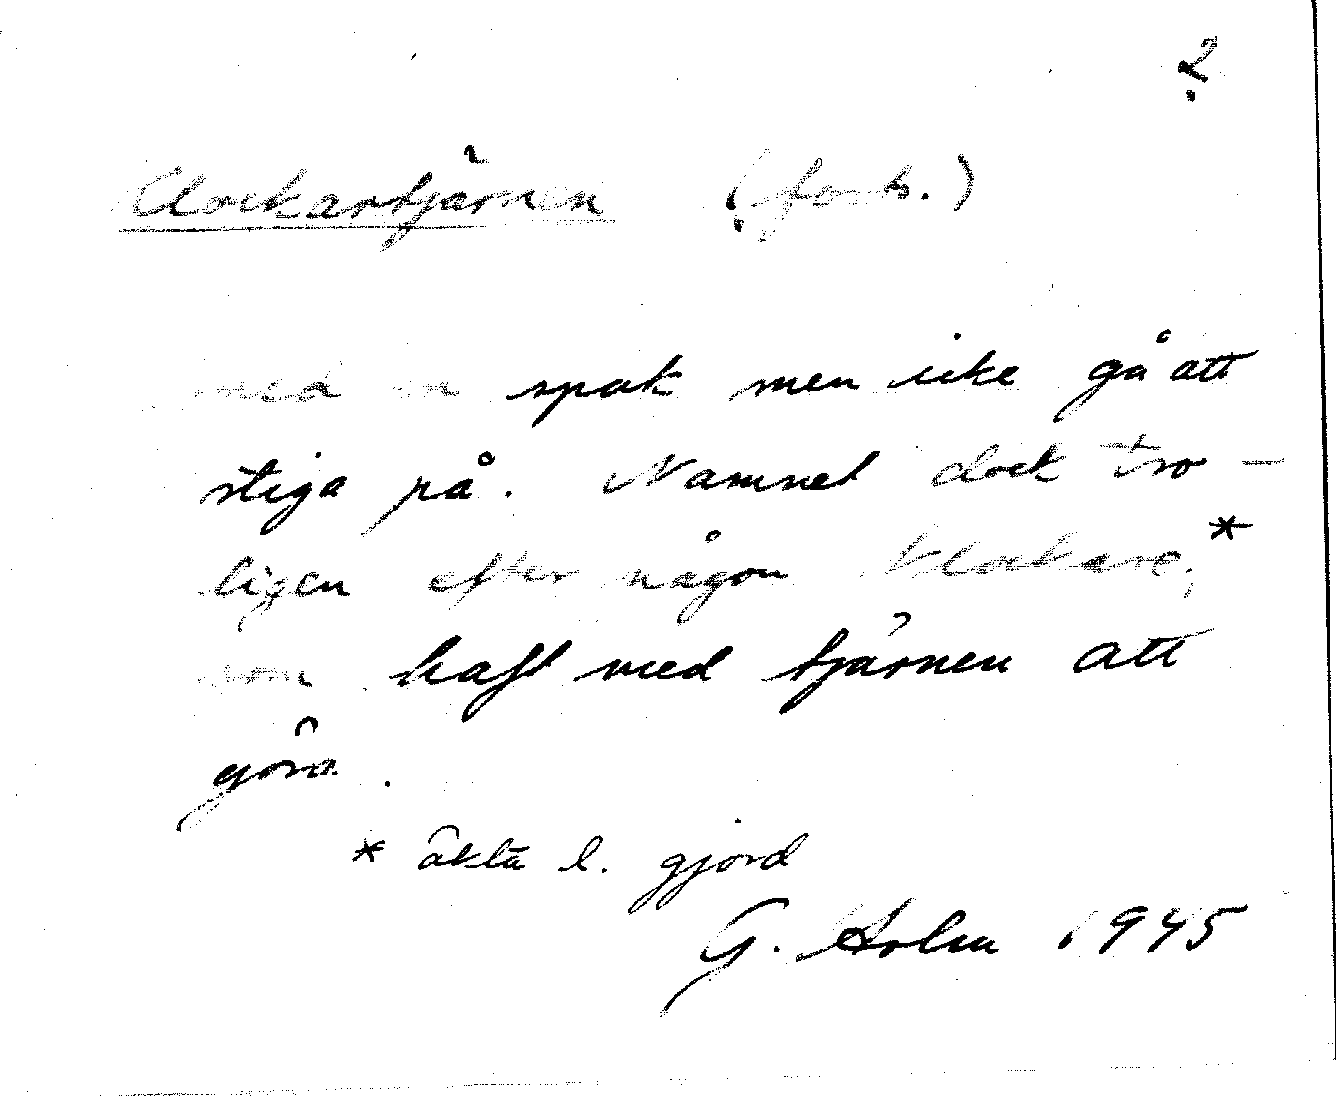 2.
Klockartjärnen (forts.)
med en spak men icke gå att
stiga på. Namnet dock tro-
ligen efter någon klockare,*
som haft med tjärnen att
göra.
* äkta l. gjord
G. Holm 1945